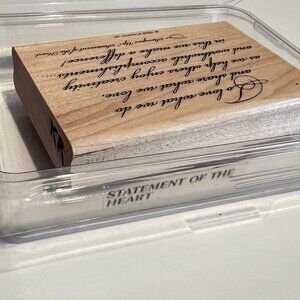 To love what we do
and share what we love
as we help others enjoy creativity
and worthwhile accomplishments...
in this we make a difference!
Stampin' Up! Statement of the Heart
STATEMENT OF THE
HEART